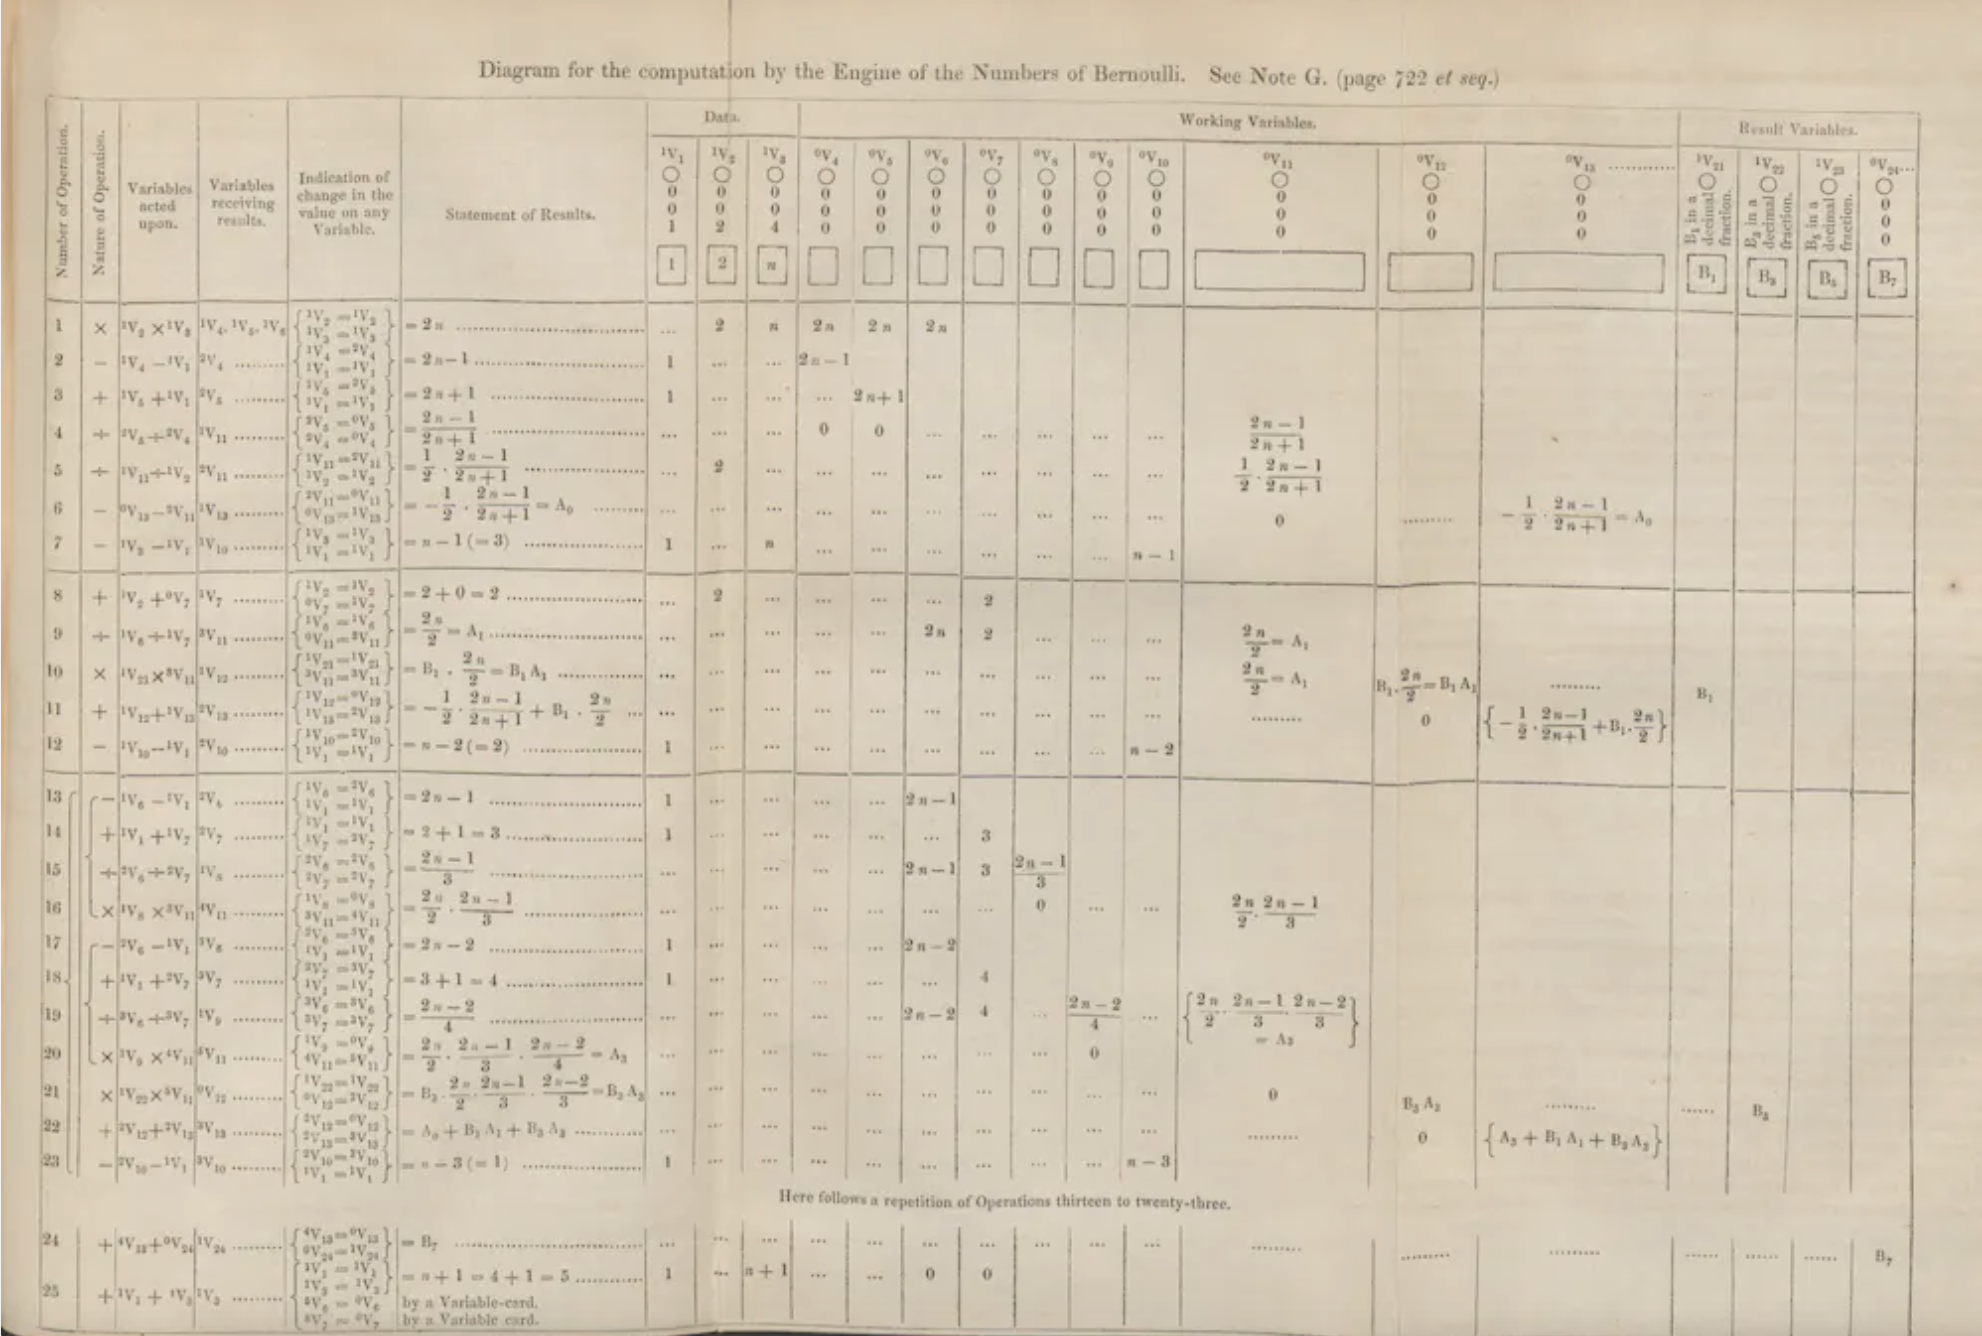 Diagram for the computation by the Engine of the Numbers of Bernoulli. See Note G. (page 722 et seq.)
Number of Operation. Nature of Operation. Variables acted upon. Variables receiving results. Indication of change in the value on any Variable. Statement of Results.
Data. Working Variables. Result Variables.
¹V₁ ¹V₂ ¹V₃ ⁰V₄ ⁰V₅ ⁰V₆ ⁰V₇ ⁰V₈ ⁰V₉ ⁰V₁₀ ⁰V₁₁ ⁰V₁₂ ⁰V₁₃ ............ ¹V₂₁ ¹V₂₂ ¹V₂₃ ⁰V₂₄...
○ ○ ○ ○ ○ ○ ○ ○ ○ ○ ○ ○ ○ ○ ○ ○ ○
0 0 0 0 0 0 0 0 0 0 0 0 0 B₁ in a decimal fraction. B₃ in a decimal fraction. B₅ in a decimal fraction. 0
0 0 0 0 0 0 0 0 0 0 0 0 0 0
1 2 4 0 0 0 0 0 0 0 0 0 0 0
1 2 n B₁ B₃ B₅ B₇
1 × ¹V₂ × ¹V₃ ¹V₄, ¹V₅, ¹V₆ { ¹V₂ = ¹V₂ ¹V₃ = ¹V₃ } = 2n ... 2 n 2n 2n 2n
2 − ¹V₄ − ¹V₁ ²V₄ { ¹V₄ = ²V₄ ¹V₁ = ¹V₁ } = 2n − 1 1 ... ... 2n − 1
3 + ¹V₅ + ¹V₁ ²V₅ { ¹V₅ = ²V₅ ¹V₁ = ¹V₁ } = 2n + 1 1 ... ... ... 2n + 1
4 ÷ ²V₅ ÷ ²V₄ ¹V₁₁ { ²V₅ = ⁰V₅ ²V₄ = ⁰V₄ } = (2n − 1)/(2n + 1) ... ... ... 0 0 ... ... ... ... ... (2n − 1)/(2n + 1)
5 ÷ ¹V₁₁ ÷ ¹V₂ ²V₁₁ { ¹V₁₁ = ²V₁₁ ¹V₂ = ¹V₂ } = 1/2 · (2n − 1)/(2n + 1) ... 2 ... ... ... ... ... ... ... ... 1/2 · (2n − 1)/(2n + 1)
6 − ⁰V₁₃ − ²V₁₁ ¹V₁₃ { ²V₁₁ = ⁰V₁₁ ⁰V₁₃ = ¹V₁₃ } = − 1/2 · (2n − 1)/(2n + 1) = A₀ ... ... ... ... ... ... ... ... ... ... 0 ......... − 1/2 · (2n − 1)/(2n + 1) = A₀
7 − ¹V₃ − ¹V₁ ¹V₁₀ { ¹V₃ = ¹V₃ ¹V₁ = ¹V₁ } = n − 1 (= 3) 1 ... n ... ... ... ... ... ... n − 1
8 + ¹V₂ + ⁰V₇ ¹V₇ { ¹V₂ = ¹V₂ ⁰V₇ = ¹V₇ } = 2 + 0 = 2 ... 2 ... ... ... ... 2
9 ÷ ¹V₆ ÷ ¹V₇ ³V₁₁ { ¹V₆ = ¹V₆ ⁰V₁₁ = ³V₁₁ } = 2n/2 = A₁ ... ... ... ... ... 2n 2 ... ... ... 2n/2 = A₁
10 × ¹V₂₁ × ³V₁₁ ¹V₁₂ { ¹V₂₁ = ¹V₂₁ ³V₁₁ = ³V₁₁ } = B₁ · 2n/2 = B₁ A₁ ... ... ... ... ... ... ... ... ... ... 2n/2 = A₁ B₁ · 2n/2 = B₁ A₁ ......... B₁
11 + ¹V₁₂ + ¹V₁₃ ²V₁₃ { ¹V₁₂ = ⁰V₁₂ ¹V₁₃ = ²V₁₃ } = − 1/2 · (2n − 1)/(2n + 1) + B₁ · 2n/2 ... ... ... ... ... ... ... ... ... ... ......... 0 { − 1/2 · (2n − 1)/(2n + 1) + B₁ · 2n/2 }
12 − ¹V₁₀ − ¹V₁ ²V₁₀ { ¹V₁₀ = ²V₁₀ ¹V₁ = ¹V₁ } = n − 2 (= 2) 1 ... ... ... ... ... ... ... ... n − 2
13 − ¹V₆ − ¹V₁ ²V₆ { ¹V₆ = ²V₆ ¹V₁ = ¹V₁ } = 2n − 1 1 ... ... ... ... 2n − 1
14 + ¹V₁ + ¹V₇ ²V₇ { ¹V₁ = ¹V₁ ¹V₇ = ²V₇ } = 2 + 1 = 3 1 ... ... ... ... ... 3
15 ÷ ²V₆ ÷ ²V₇ ¹V₈ { ²V₆ = ²V₆ ²V₇ = ²V₇ } = (2n − 1)/3 ... ... ... ... ... 2n − 1 3 (2n − 1)/3
16 × ¹V₈ × ³V₁₁ ⁴V₁₁ { ¹V₈ = ⁰V₈ ³V₁₁ = ⁴V₁₁ } = 2n/2 · (2n − 1)/3 ... ... ... ... ... ... ... 0 ... ... 2n/2 · (2n − 1)/3
17 − ²V₆ − ¹V₁ ³V₆ { ²V₆ = ³V₆ ¹V₁ = ¹V₁ } = 2n − 2 1 ... ... ... ... 2n − 2
18 + ¹V₁ + ²V₇ ³V₇ { ²V₇ = ³V₇ ¹V₁ = ¹V₁ } = 3 + 1 = 4 1 ... ... ... ... ... 4
19 ÷ ³V₆ ÷ ³V₇ ¹V₉ { ³V₆ = ³V₆ ³V₇ = ³V₇ } = (2n − 2)/4 ... ... ... ... ... 2n − 2 4 ... (2n − 2)/4 ... { 2n/2 · (2n − 1)/3 · (2n − 2)/3 = A₃ }
20 × ¹V₉ × ⁴V₁₁ ⁵V₁₁ { ¹V₉ = ⁰V₉ ⁴V₁₁ = ⁵V₁₁ } = 2n/2 · (2n − 1)/3 · (2n − 2)/4 = A₃ ... ... ... ... ... ... ... ... 0
21 × ¹V₂₂ × ⁵V₁₁ ⁰V₁₂ { ¹V₂₂ = ¹V₂₂ ⁰V₁₂ = ²V₁₂ } = B₃ · 2n/2 · (2n − 1)/3 · (2n − 2)/3 = B₃ A₃ ... ... ... ... ... ... ... ... ... ... 0 B₃ A₃ ......... ...... B₃
22 + ²V₁₂ + ²V₁₃ ³V₁₃ { ²V₁₂ = ⁰V₁₂ ²V₁₃ = ³V₁₃ } = A₀ + B₁ A₁ + B₃ A₃ ... ... ... ... ... ... ... ... ... ... ......... 0 { A₃ + B₁ A₁ + B₃ A₃ }
23 − ²V₁₀ − ¹V₁ ³V₁₀ { ²V₁₀ = ³V₁₀ ¹V₁ = ¹V₁ } = n − 3 (= 1) 1 ... ... ... ... ... ... ... ... n − 3
Here follows a repetition of Operations thirteen to twenty-three.
24 + ⁴V₁₃ + ⁰V₂₄ ¹V₂₄ { ⁴V₁₃ = ⁰V₁₃ ⁰V₂₄ = ¹V₂₄ } = B₇ ... ... ... ... ... ... ... ... ... ... ......... ......... ......... ...... ...... ...... B₇
25 + ¹V₁ + ¹V₃ ¹V₃ { ¹V₁ = ¹V₁ ¹V₃ = ¹V₃ = n + 1 = 4 + 1 = 5 1 ... n + 1 ... ... 0 0
⁵V₆ = ⁰V₆ by a Variable-card.
⁵V₇ = ⁰V₇ } by a Variable card.